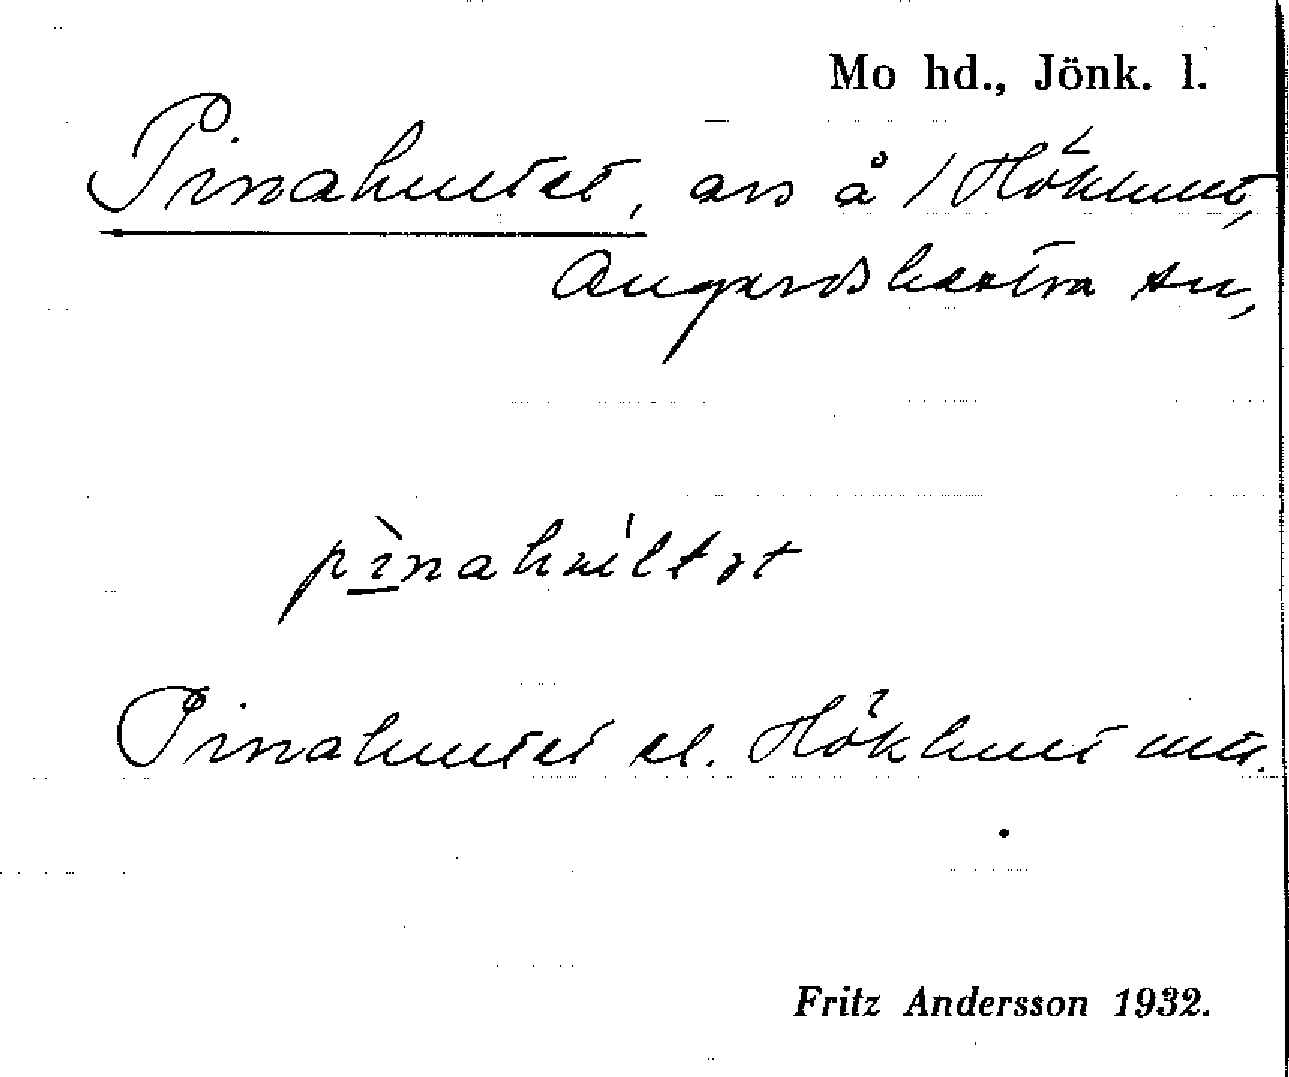 Mo hd., Jönk. l.
Pinahultet, avs å 1 Hökhult,
Ångerdshestra sn,
pìnahúltət
Pinahultet el. Hökhult
Fritz Andersson 1932.